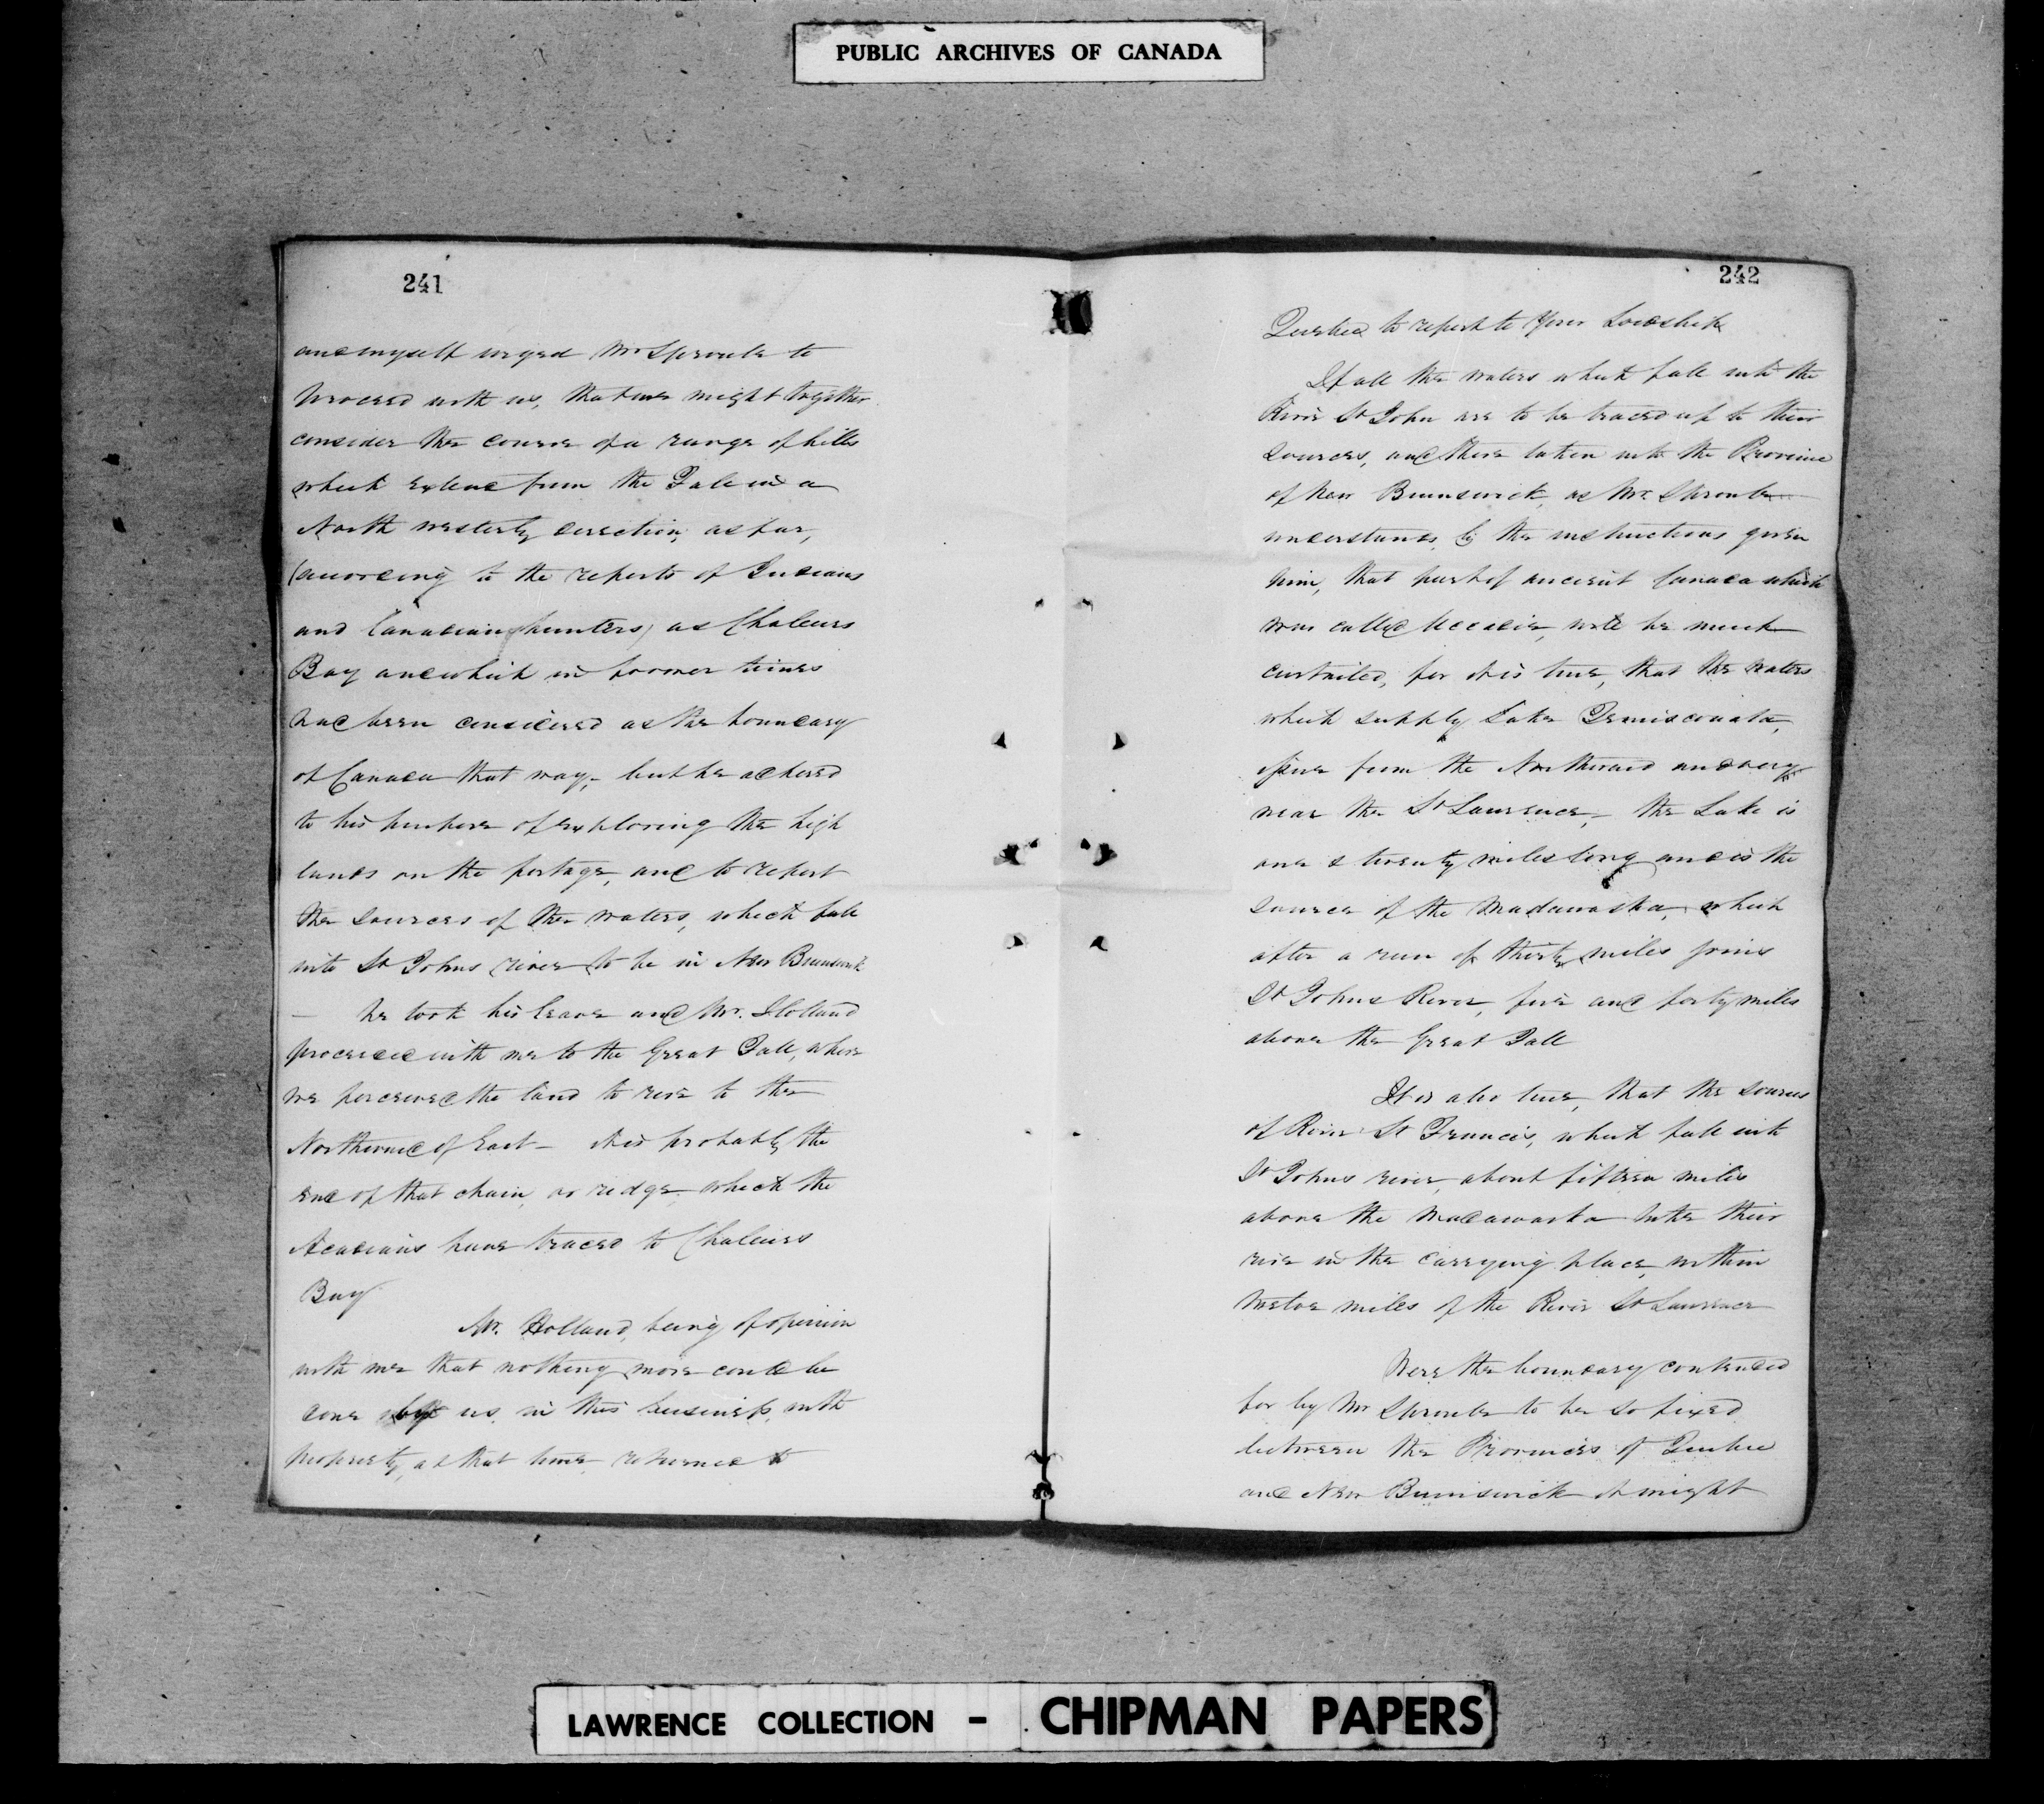 PUBLIC ARCHIVES OF CANADA
241
and myself urged Mr Sproule to
proceed with us, that we might together
consider the course of a range of hills
which extend from the Fale in a
North westerly direction, as far,
(according to the reports of Indians
and Canadian hunters) as Chaleurs
Bay and which in former times
had been considered as the boundary
of Canada that way,- but he adhered
to his purpose of exploring the high
lands on the portage, and to report
the sources of the waters, which fall
into St Johns river to be in New Brunswick
— he took his leave and Mr. Holland
proceeded with me to the Great Fall, where
we perceived the land to rise to the
Northward of East - this probably the
end of that chain, or ridge which the
Acadians have traced to Chaleurs
Bay
Mr. Holland, being of opinion
with me that nothing more could be
done by us in this business, with
propriety, at that time returned to
242
Quebec to report to Your Lordship
If all the waters which fall into the
River St John are to be traced up to their
sources, and there taken into the Province
of New Brunswick, as Mr. Sproule
understands, by the instructions given
him, that part of ancient Canada which
was called Accadie, will be much
curtailed, for it is true, that the waters
which supply Lake Temisconata,
issue from the Northward and very
near the St Lawrence,- the Lake is
one & twenty miles long and is the
source of the Madawaska, which
after a run of thirty miles joins
St Johns River, five and forty miles
above the Great Fall
It is also true, that the sources
of River St Francis, which fall into
St Johns river, about fifteen miles
above the Madawaska take their
rise in the carrying place, within
twelve miles of the River St Lawrence
Were the boundary contended
for by Mr Sproule to be so fixed
between the Provinces of Quebec
and New Brunswick it might
LAWRENCE COLLECTION - CHIPMAN PAPERS